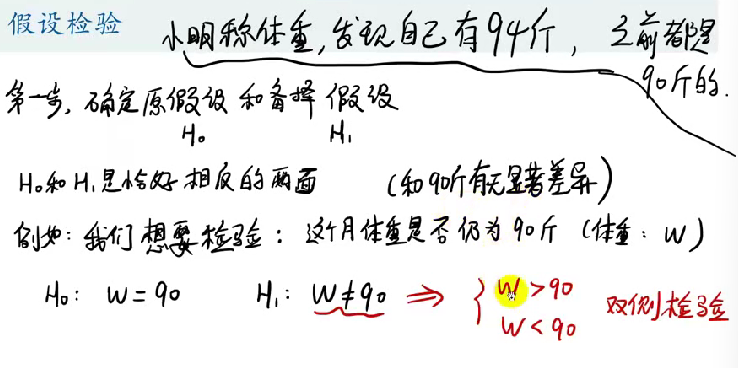 假设检验
小明称体重,发现自己有94斤,之前都是
90斤的.
第一步,确定原假设 和备择 假设
H₀ H₁
H₀和H₁是恰好相反的两面 (和90斤有无显著差异)
例如:我们想要检验:这个月体重是否仍为90斤(体重:W)
H₀: W=90 H₁: W≠90 ⇒ { W>90 双侧检验
W<90